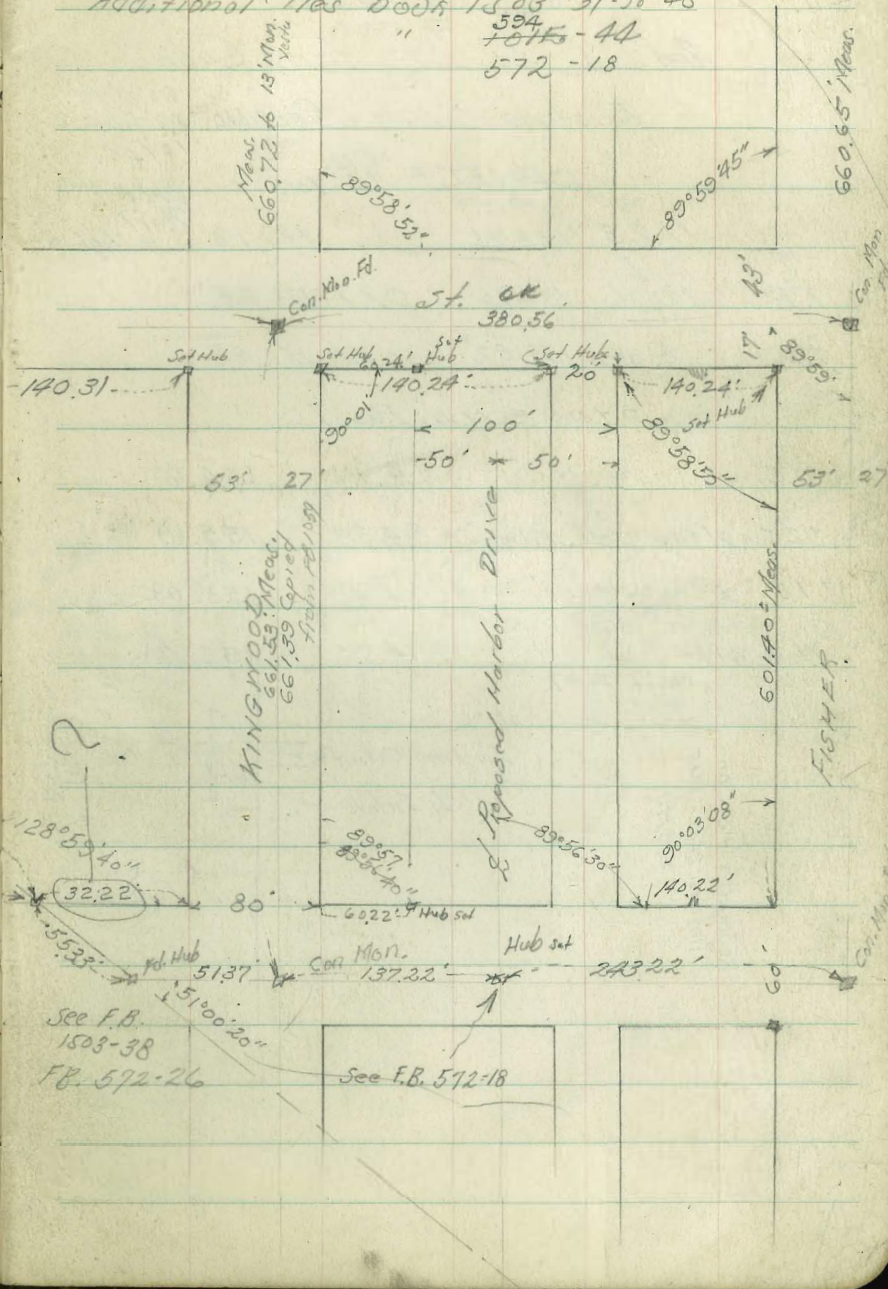 Additional Ties Book 1503 31-38-48
" 594
1015 - 44
572 - 18
Meas.
660.72 to 13' Mon.
660.65 Meas.
89°58'52"
89°59'45"
Con. Mon. Fd.
St. OK
380.56
17' 43'
Con. Mon
Set Hub
Set Hub
60.24'
Set
Hub
Set Hubs
20'
89°59'
140.31
140.24'
140.24'
Set Hub
90°01'
100'
50' 50'
89°58'50"
53' 27'
53' 27
KINGWOOD
661.53' Meas.
661.39 Copied
from FB 1059
Proposed Harbor Drive
601.40 Meas.
FISHER
?
128°59'40"
32.22
80'
89°57'
89°56'40"
89°56'30"
90°03'08"
140.22'
60.22' Hub set
55.33'
Fd. Hub
51.37'
Con Mon.
137.22'
Hub set
243.22'
60'
Con. Mon
51°00'20"
See F.B.
1503-38
FB. 572-26
See F.B. 572-18